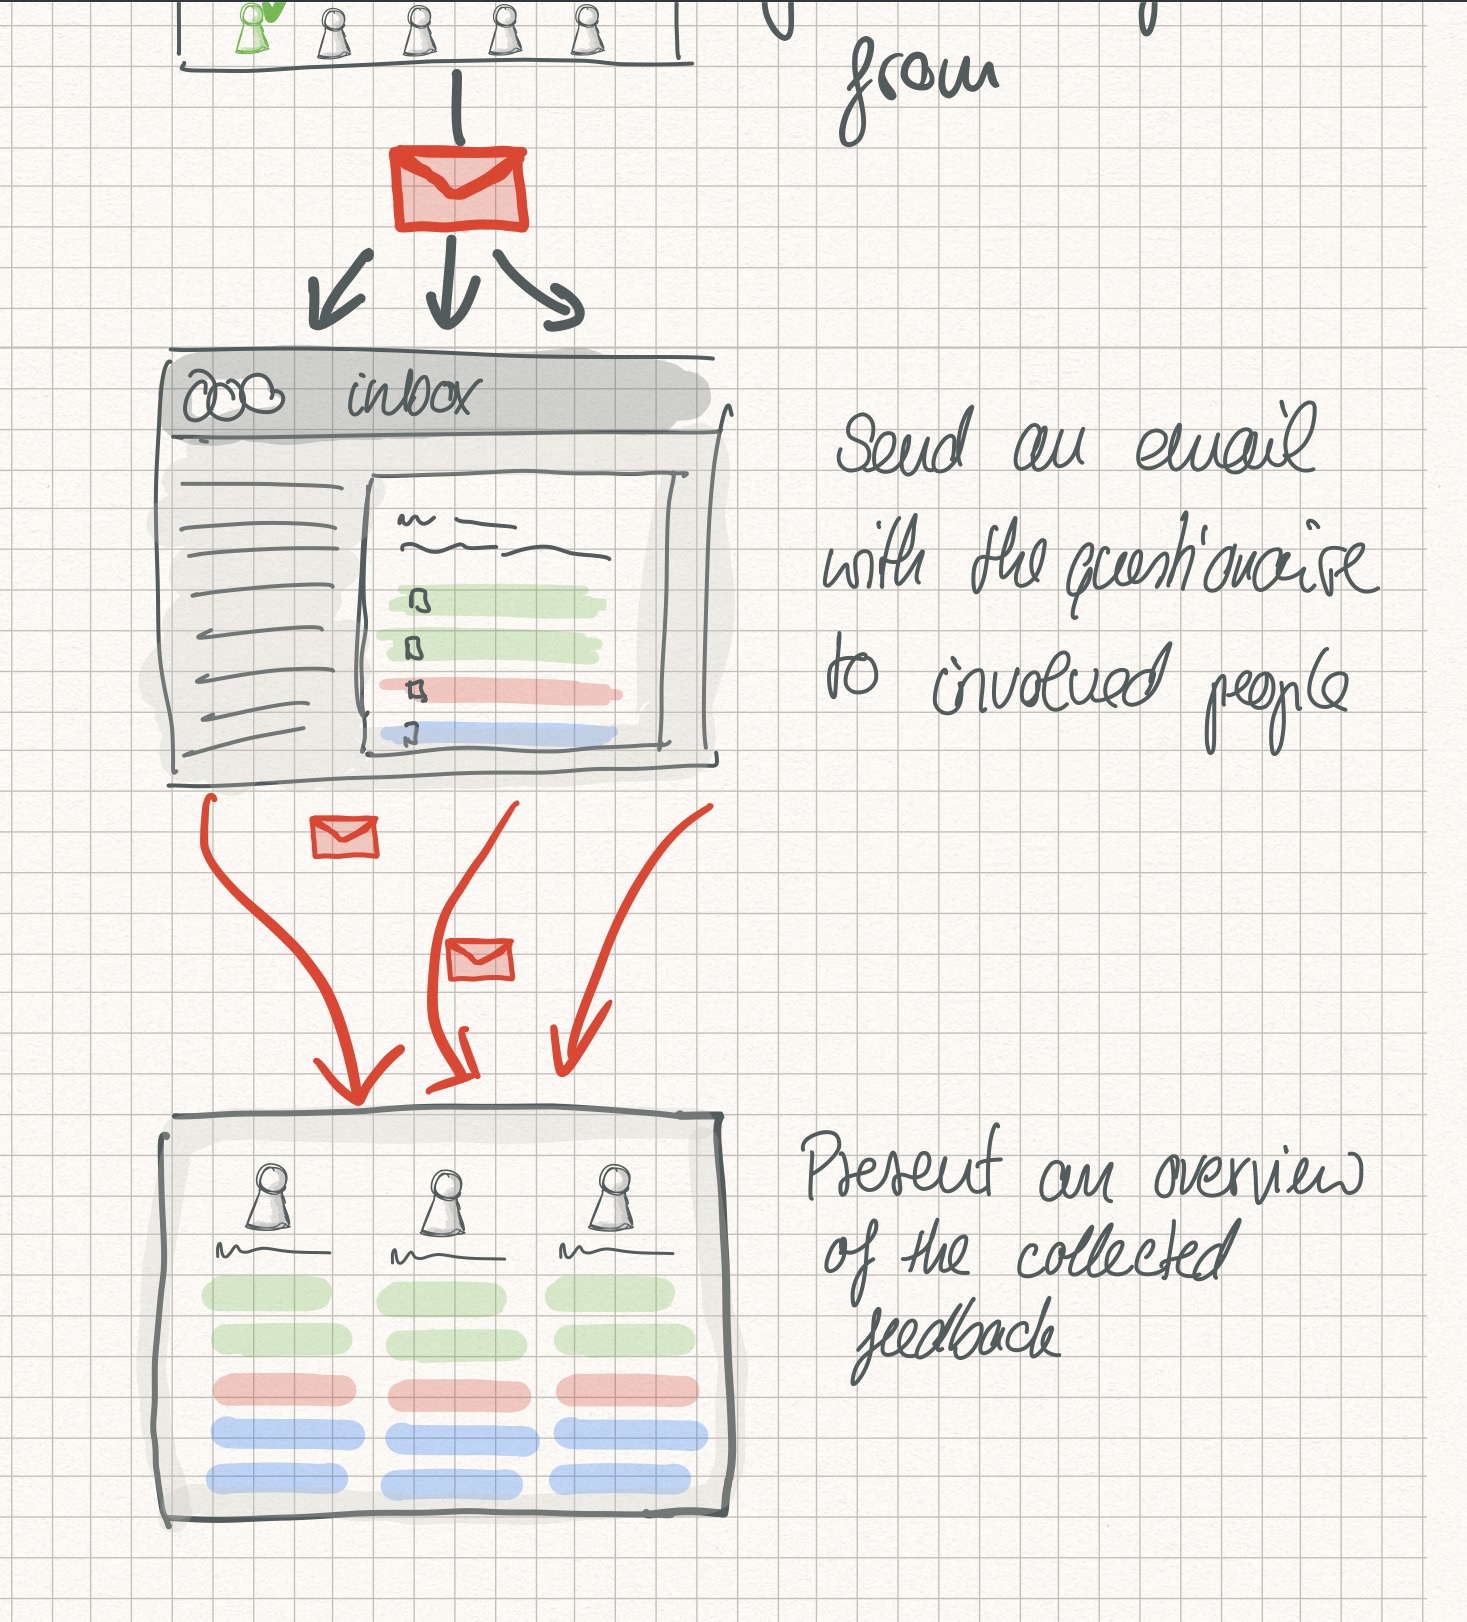 from
inbox
Send an email
with the questionaire
to involved people
Present an overview
of the collected
feedback